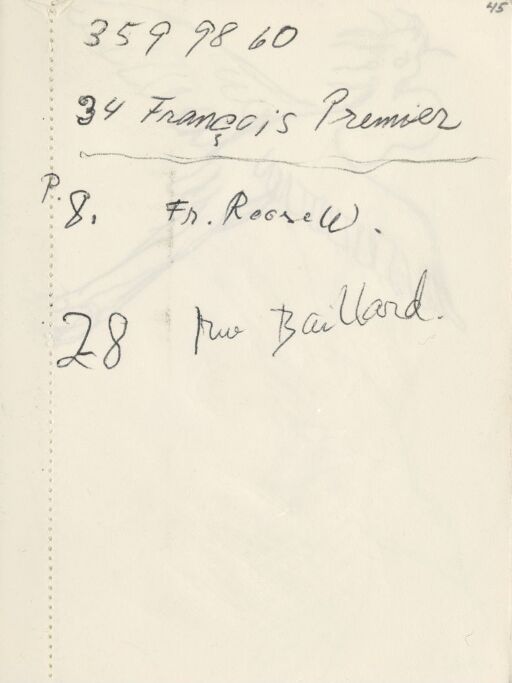 45
359 98 60
34 François Premier
P. 8. Fr. Roosvelt.
28 rue Baillard.